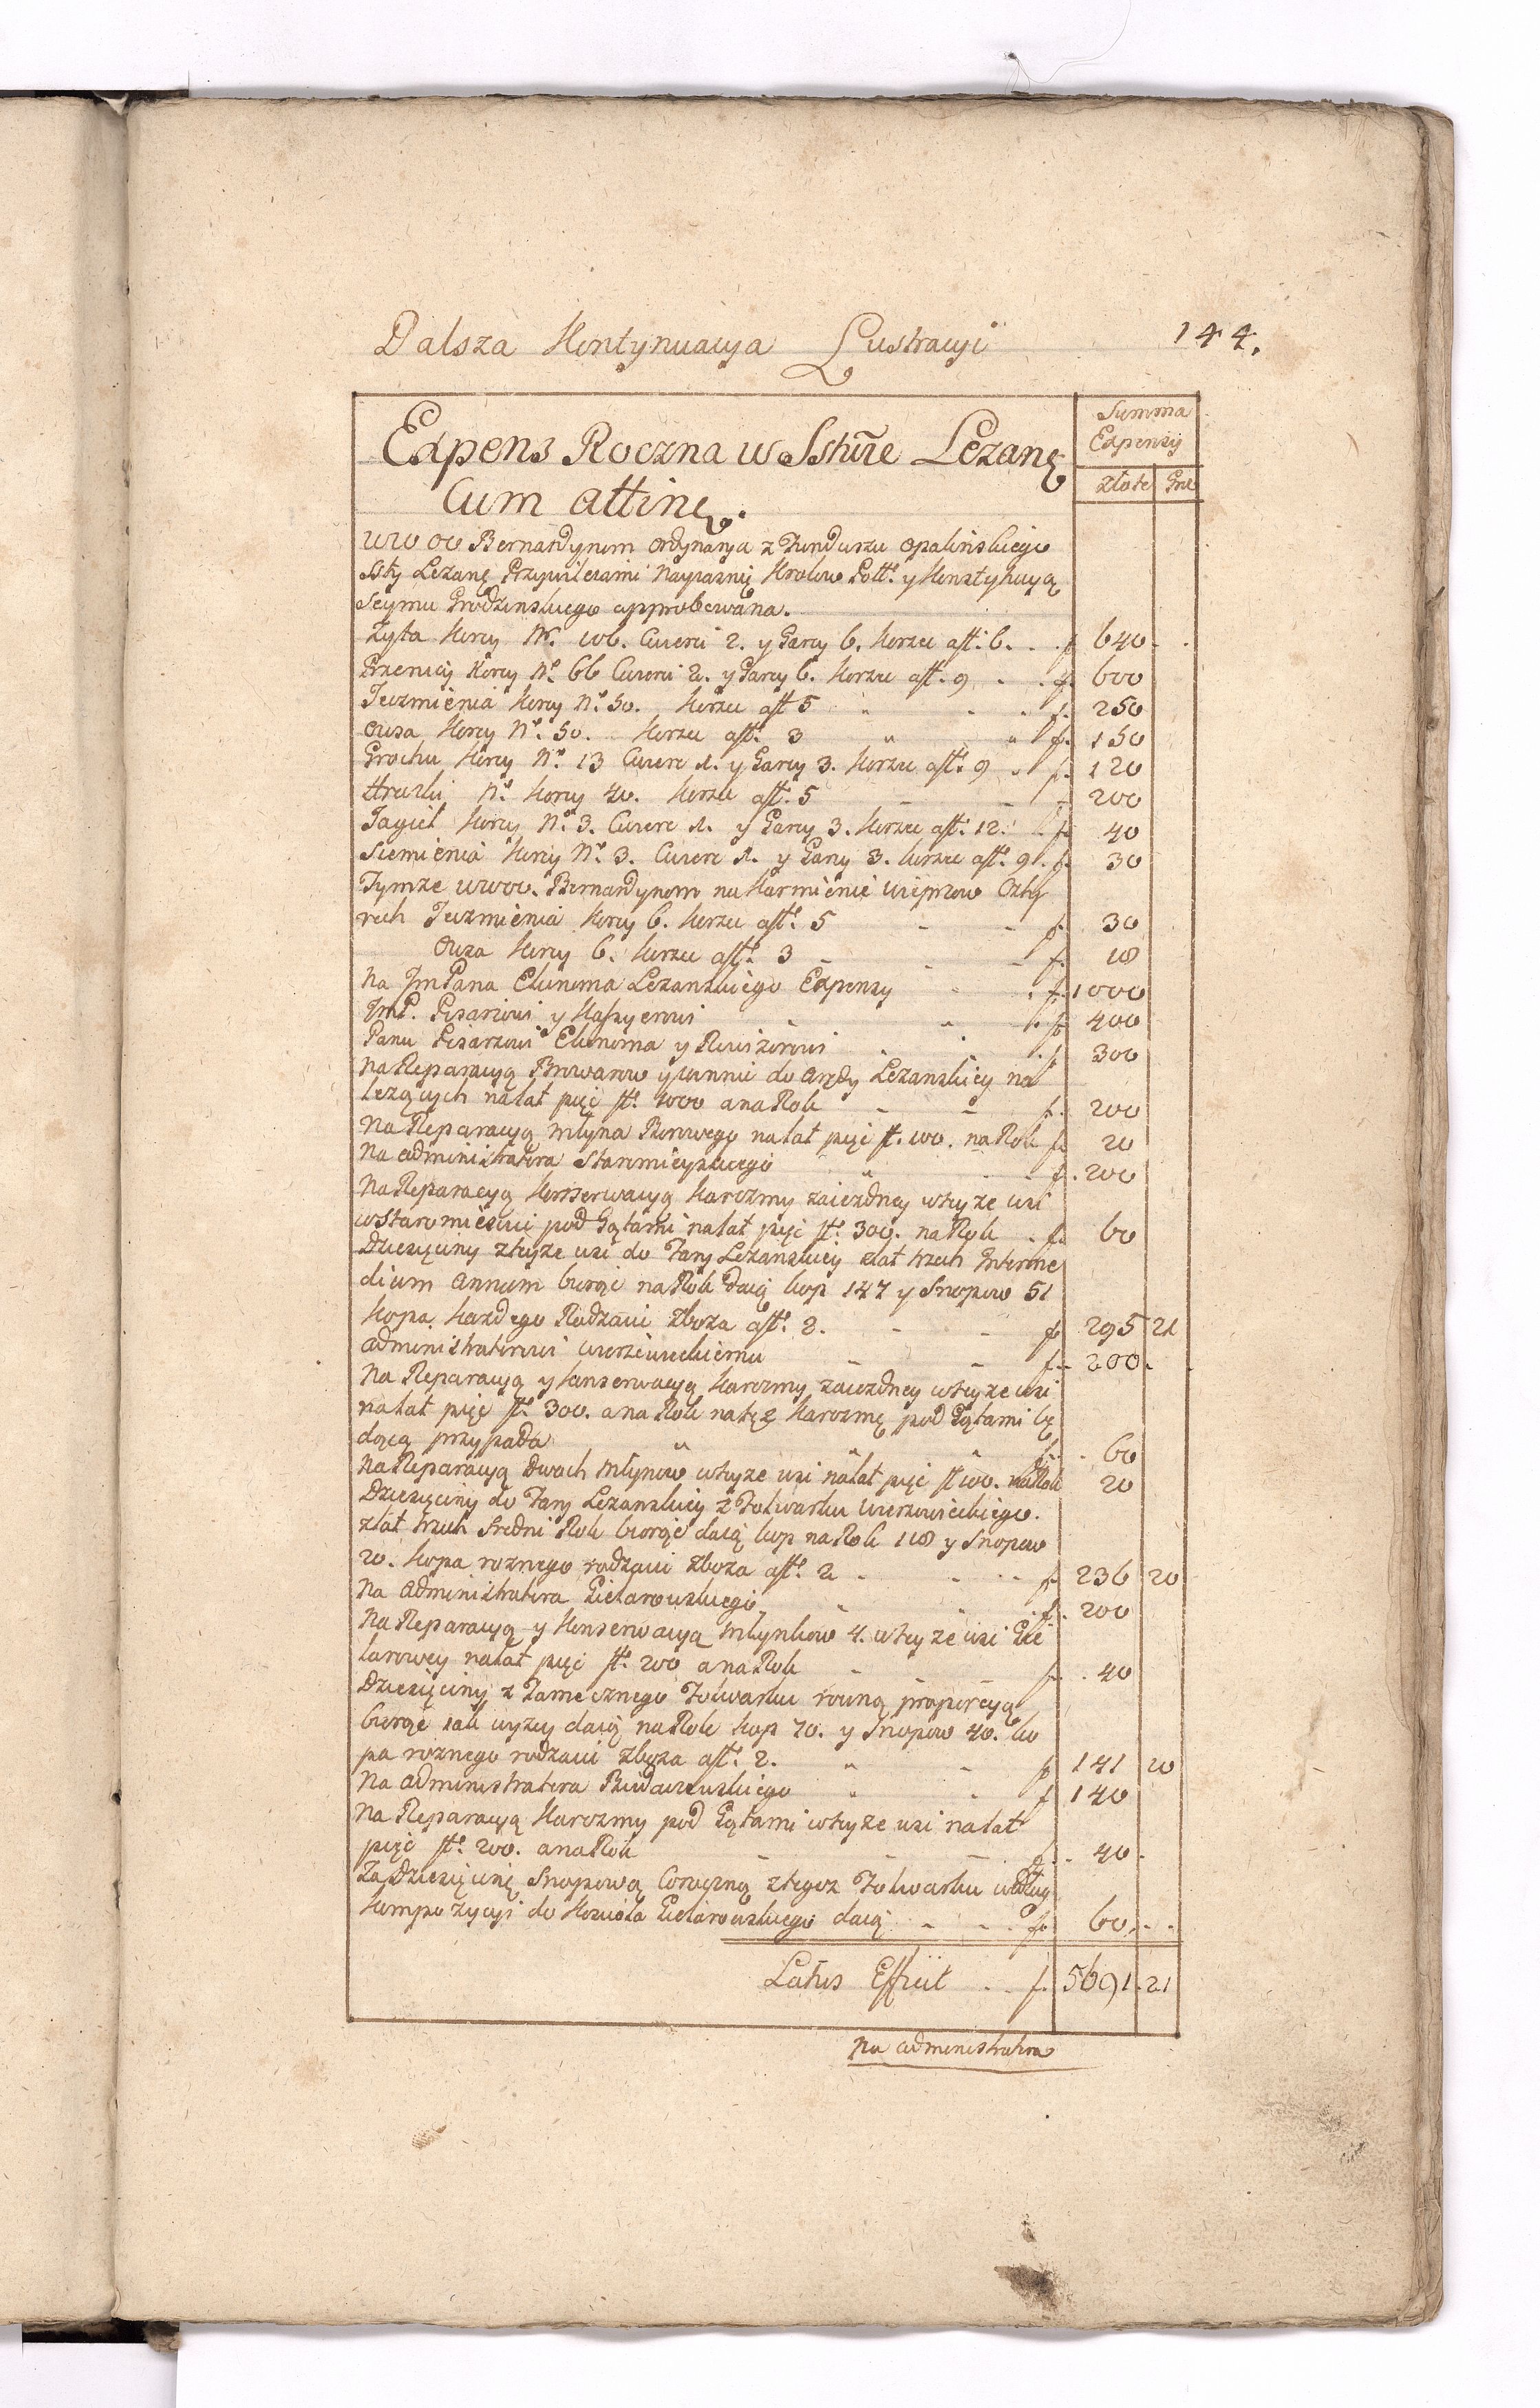 Dalsza Kontynuacya Lustracyi
144.
Expens Roczna w Sstwie Lezanę
Cum attinę.
Summa
Expensy
złote Gro
WW OO Bernardynom Ordynarya z Funduszu Opalińskiego
Ssty Lezanę Przywileiami Nayiasnię Krolow Polł. y Konstytucyą
Seymu Grodzinskiego approbowana.
Zyta Korcy Nr. 106. Cwierci 2. y Garcy 6. Korzec a ft. 6. f. 640
Przenicy Korcy No. 66 Cwierci 2. y Garcy 6. Korzec a ft. 9 f. 600
Jęczmienia Korcy No. 50. Korzec a ft 5 f. 250
Owsa Korcy No. 50. Korzec a ft. 3 f. 150
Grochu Korcy No. 13 Cwierc 1. y Garcy 3. Korzec a ft. 9 f. 120
Hreczki No. Korcy 40. Korzec a ft. 5 200
Jagieł Korcy No. 3. Cwierc 1. y Garcy 3. Korzec a ft. 12. f. 40
Siemienia Korcy No. 3. Cwierc 1. y Garcy 3. Korzec a ft. 9. f. 30
Tymze WWOO. Bernardynom na Karmienie Wieprzow Czty
rech Jęczmienia Korcy 6. Korzec a ft. 5 f. 30
Owsa Korcy 6. Korzec a ft. 3 f. 18
Na Jm Pana Ekonoma Lezanskiego Expensy f. 1000
JmP. Pisarzowi y Kassyerowi f. 400
Panu Pisarzowi Ekonoma y Rewizorowi f. 300
Na Reparacyą Browarow y winnic do Arędy Lezanskiey na
lezących na lat pięć ft. 1000 a na Rok f. 200
Na Reparacyą Młyna Borowego na lat pięć ft. 100. na Rok f. 20
Na Administratora Staromieyskiego f. 200
Na Reparacyą Konserwacyą Karczmy zaiezdney w teyze wsi
w Staromiesciu pod Gątami na lat pięć ft. 300. na Rok f. 60
Dziesięciny z teyze wsi do Fary Lezanskiey z lat trzech Interme
dium Annum biorąc na Rok daią kop 147 y Snopow 51
kopa kazdego Rodzaiu zboza a ft. 2. f. 295 21
Administratorowi Wierzawieckiemu f. 200
Na Reparacyą y konserwacyą Karczmy zaiezdney w teyze wsi
na lat pięć ft. 300. a na Rok na tęz Karczmę pod Gątami bę
dącą przypada f. 60
Na Reparacyą Dwoch Młynow w teyze wsi na lat pięć ft 100. na Rok 20
Dziesięciny do Fary Lezanskiey z Folwarku Wierzawieckiego.
z lat trzech Sredni Rok biorąc daią kop na Rok 118 y Snopow
20. kopa roznego rodzaiu zboza a ft. 2 f. 236 20
Na Administratora Gielarowskiego f. 200
Na Reparacyą y Konserwacyą Młynkow 4. w teyze wsi Gie
larowey na lat pięć ft. 200 a na Rok f. 40
Dziesięciny z Tamecznego Folwarku rowną proporcyą
biorąc iak wyzey daią na Rok kop 70. y Snopow 40. ko
pa roznego rodzaiu zboza a ft. 2. f. 141 20
Na Administratora Biedaczewskiego f. 140
Na Reparacyą Karczmy pod Gątami w teyze wsi na lat
pięć ft. 200. a na Rok f. 40
Za Dziesięcinę Snopową Coroczną z tegoz Folwarku według
kompozycyi do Koscioła Gielarowskiego daią f. 60
Latus Efficit f. 5691. 21
Na Administratora